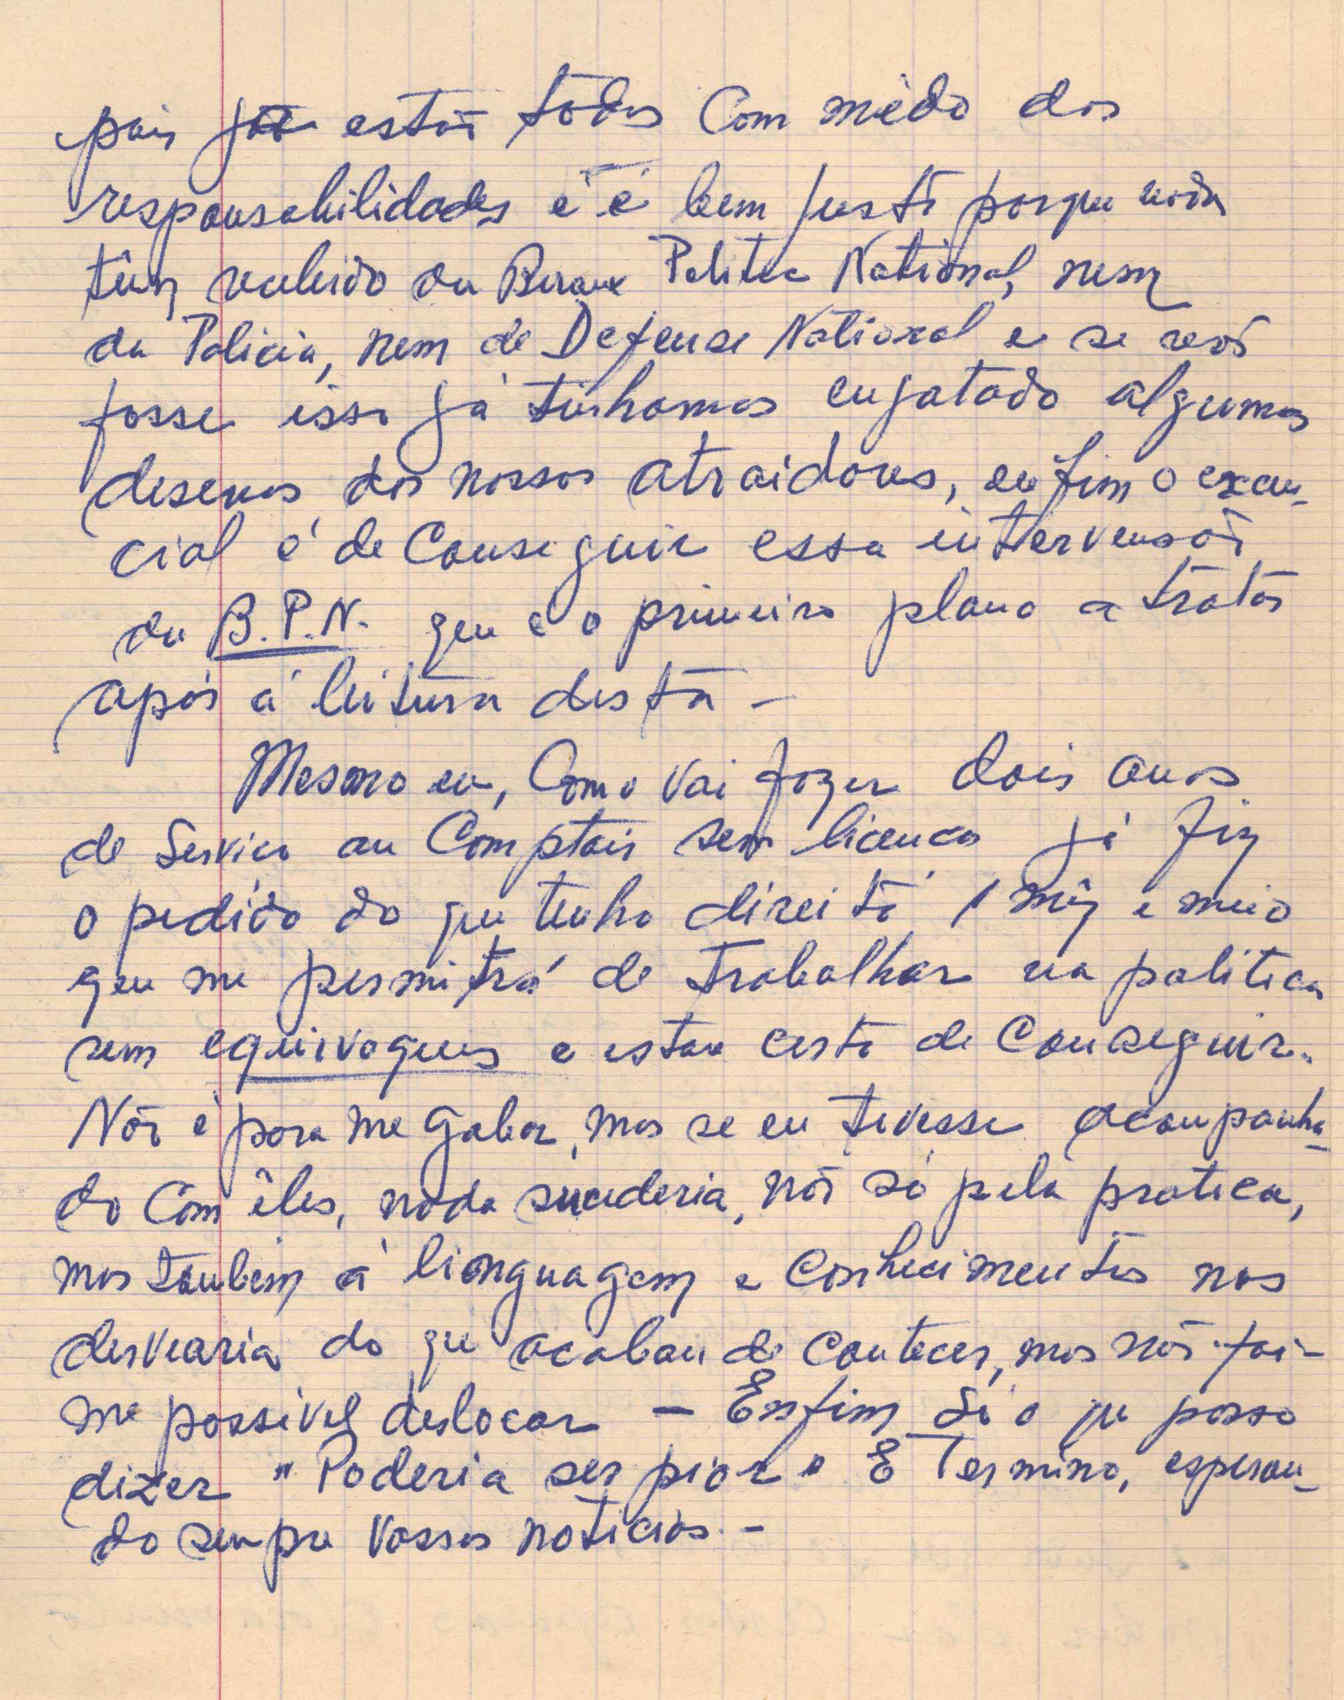 pois já estão todos com mêdo das
responsabilidades e é bem justo porque nada
têm recebido du Buraux Politec National, nem
da Policia, nem de Defense National e se não
fosse isso já tinhamos engatado algumas
desenas dos nossos atraidores, enfim o exen-
cial é de conseguir essa intervensão
du B.P.N. que é o primeiro plano a tratar
após á leitura desta -
Mesmo eu, como vai fazer dois anos
de Serviço au Comptoir sem licença já fiz
o pedido do que tenho direito 1 mêz e meio
que me permitrá de trabalhar na politica
sem equivoques e estou certo de conseguir.
Não é para me gabar, mas se eu tivesse acoupanha-
do com êles, nada suucederia, não só pela pratica,
mas também á lionguagem e conhecimentos nos
desviaria do que acabou de contecer, mas não foi-
me possivel deslocar - Enfim Só o que posso
dizer "Poderia ser pior" E Termino, esperan-
do sempre vossas noticias. -